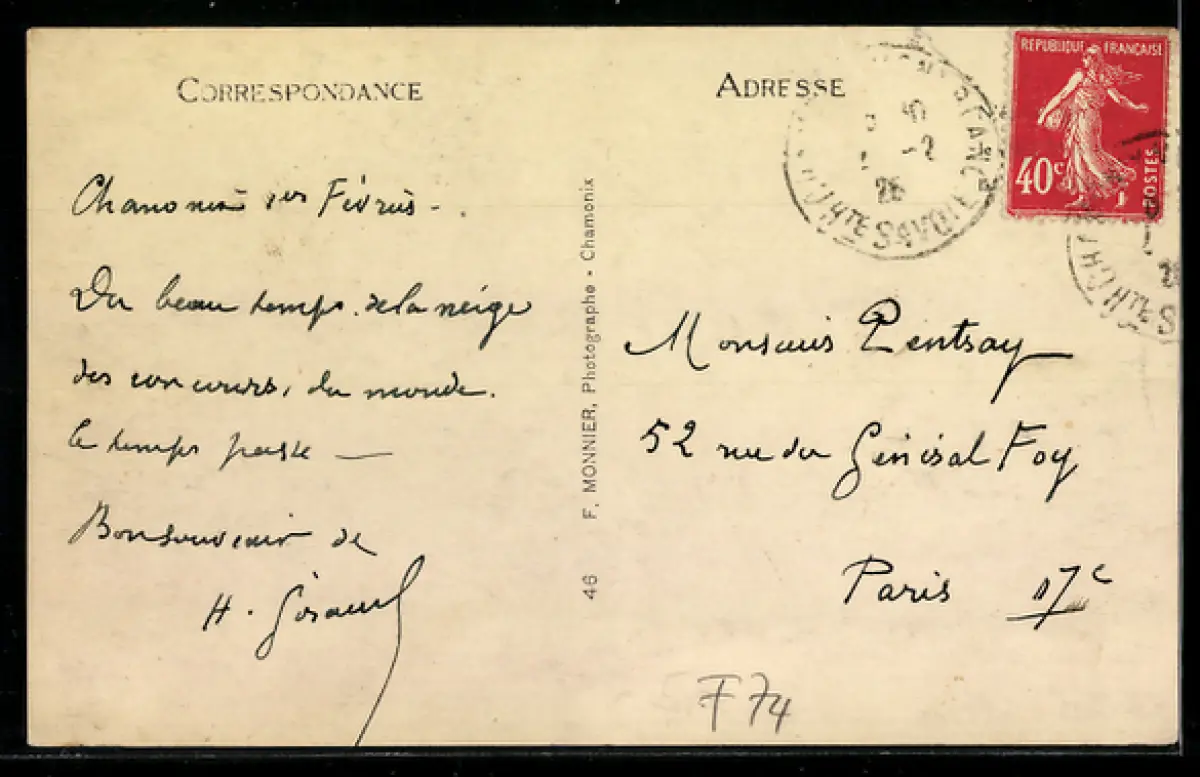 CORRESPONDANCE
Chamonix 1er Février -
Du beau temps. de la neige
des concours, du monde.
le temps passe —
Bon souvenir de
H. Giraud
46 F. MONNIER, Photographe - Chamonix
ADRESSE
REPUBLIQUE FRANÇAISE
40c
POSTES
-2
26
HTE SAVOIE
Monsieur
52 rue du Général Foy
Paris 17e
F 74